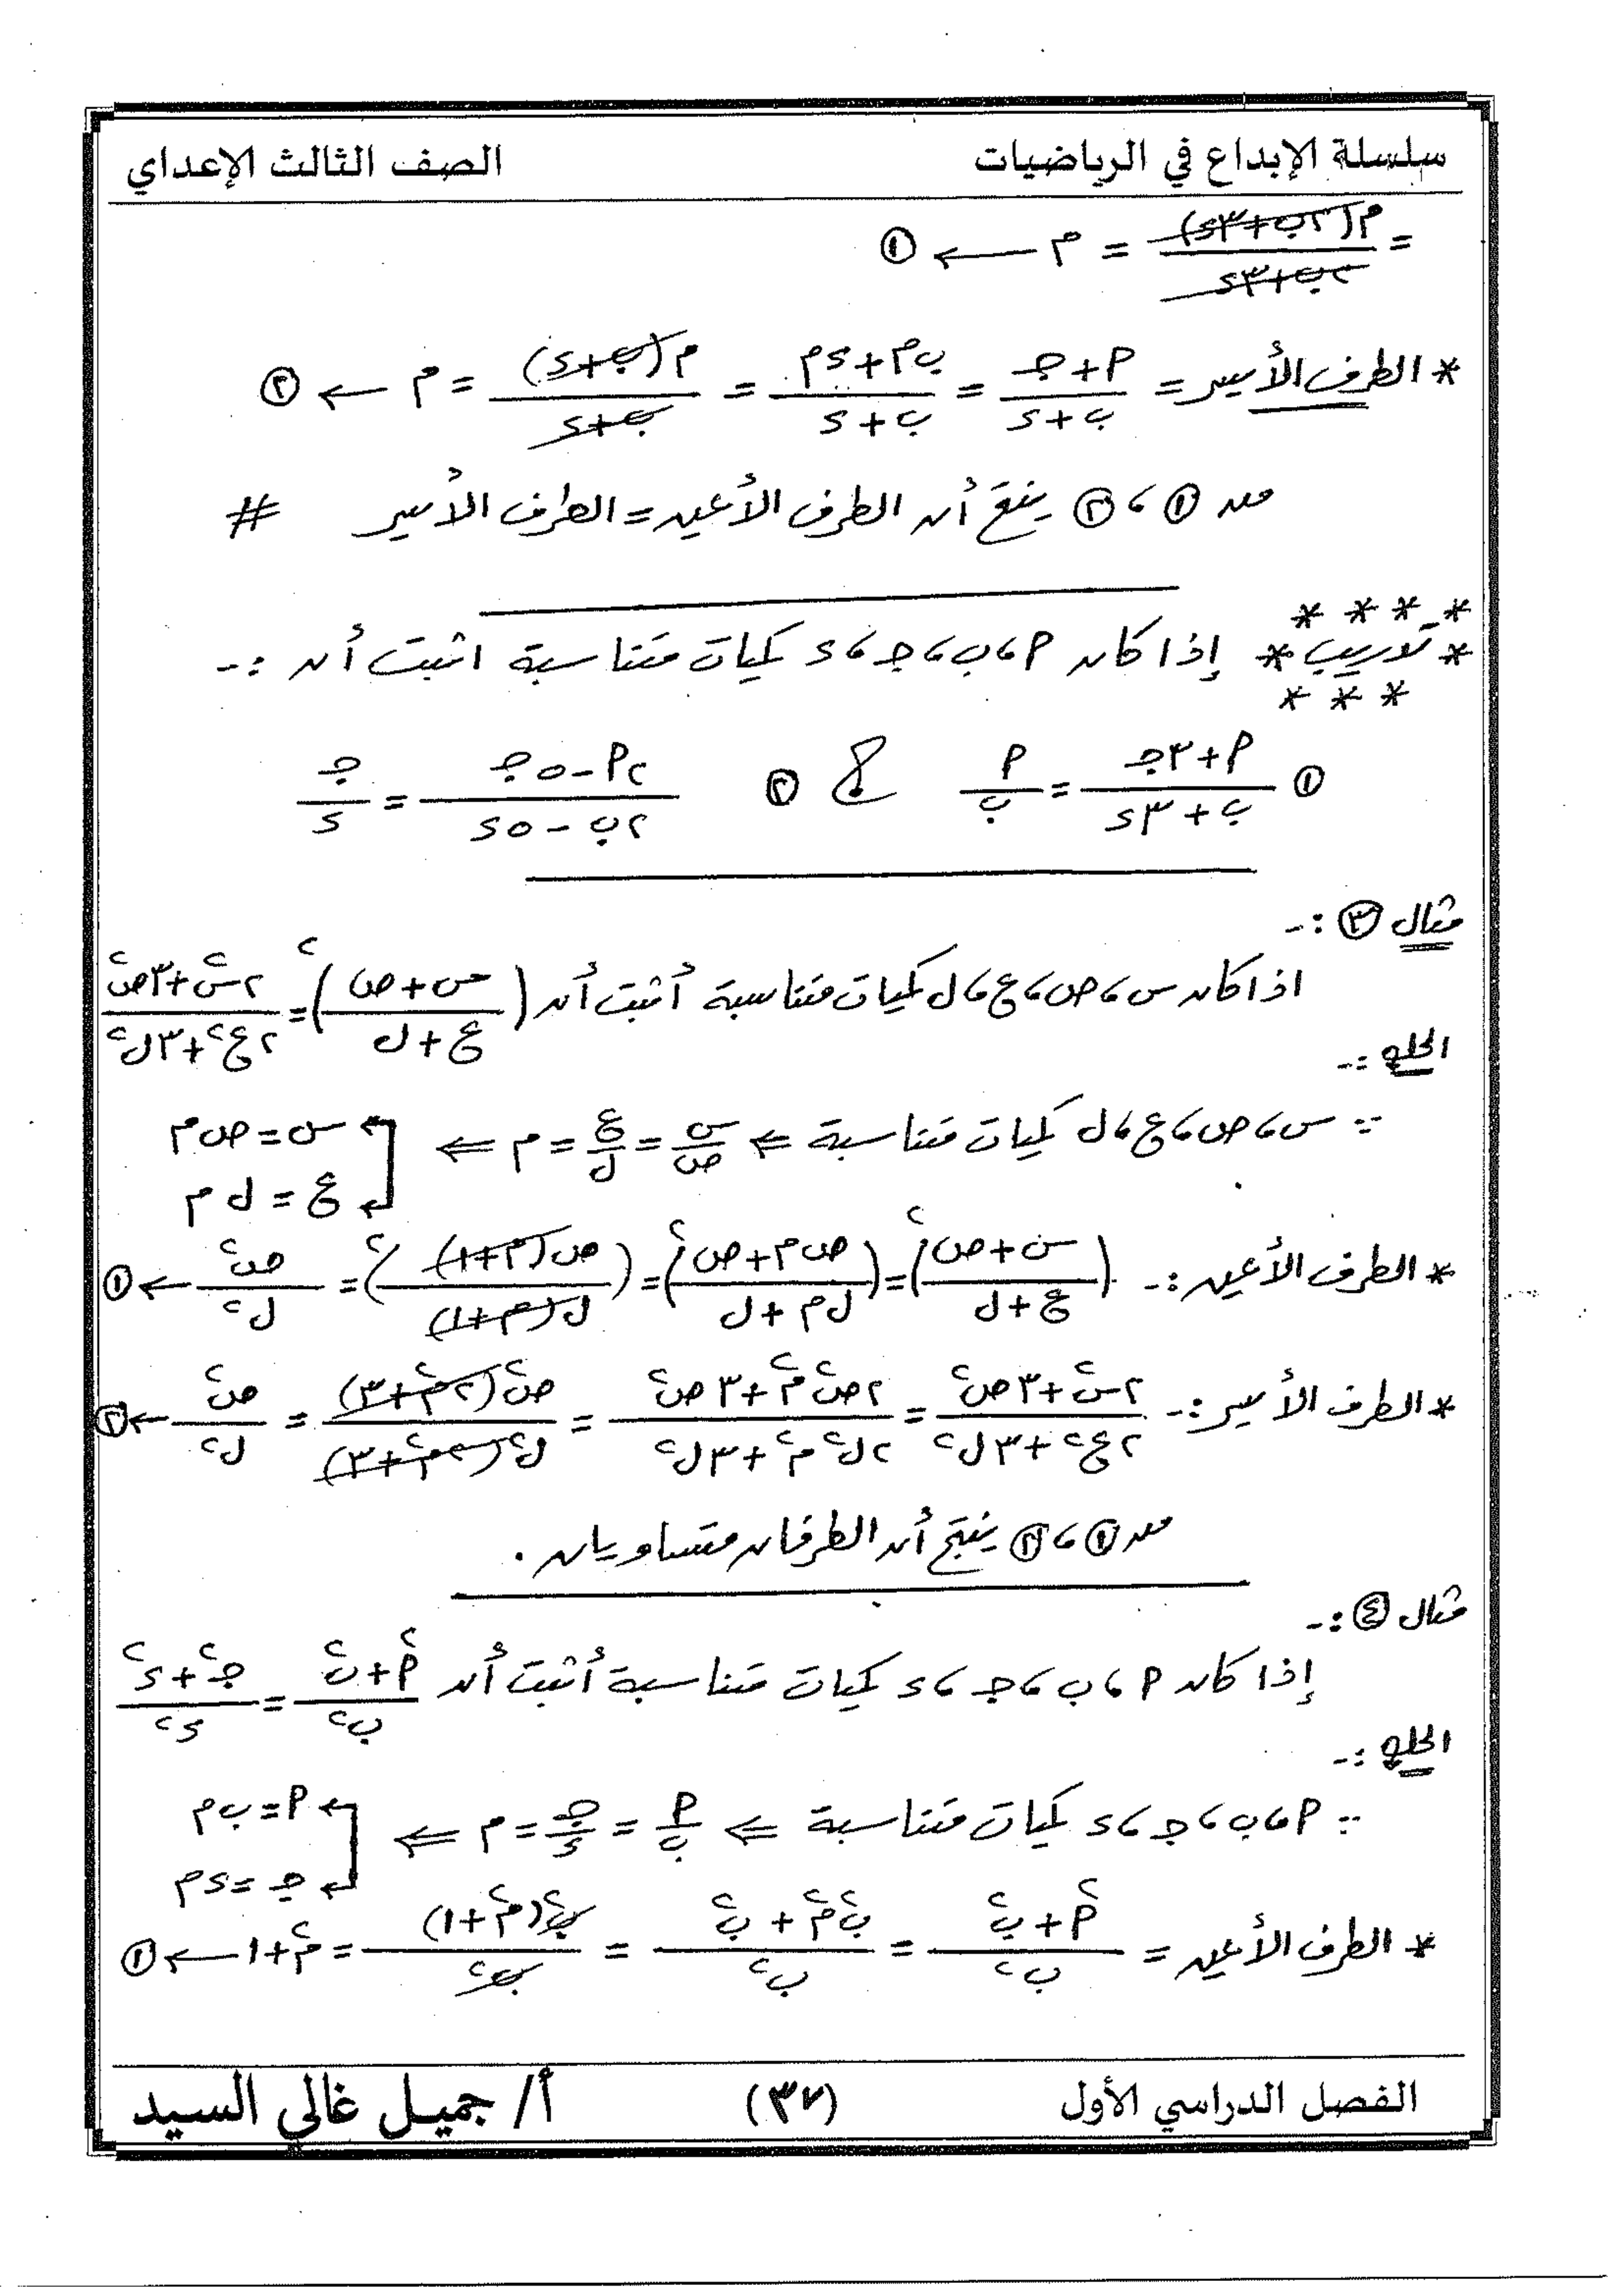 سلسلة الإبداع في الرياضيات الصف الثالث الإعدادي
= م(٢ب+٣د) / ٢ب+٣د = م ← ①
* الطرف الأيسر = أ+جـ / ب+د = ب م+د م / ب+د = م(ب+د) / ب+د = م ← ②
من ① ، ② ينتج أن الطرف الأيمن = الطرف الأيسر #
* تدريب * إذا كان أ ، ب ، جـ ، د كميات متناسبة اثبت أن :-
① أ+٣جـ / ب+٣د = أ / ب ② ٢أ-٥جـ / ٢ب-٥د = جـ / د
مثال ③ :-
اذا كان س ، ص ، ع ، ل كميات متناسبة أثبت أن (س+ص / ع+ل)² = ٢س²+٣ص² / ٢ع²+٣ل²
الحل :-
∵ س ، ص ، ع ، ل كميات متناسبة ⇐ س/ص = ع/ل = م ⇐ س = ص م
ع = ل م
* الطرف الأيمن :- (س+ص / ع+ل)² = (ص م+ص / ل م+ل)² = (ص(م+١) / ل(م+١))² = ص² / ل² ← ①
* الطرف الأيسر :- ٢س²+٣ص² / ٢ع²+٣ل² = ٢ص²م²+٣ص² / ٢ل²م²+٣ل² = ص²(٢م²+٣) / ل²(٢م²+٣) = ص² / ل² ← ②
من ① ، ② ينتج أن الطرفان متساويان .
مثال ④ :-
إذا كان أ ، ب ، جـ ، د كميات متناسبة أثبت أن أ²+ب² / ب² = جـ²+د² / د²
الحل :-
∵ أ ، ب ، جـ ، د كميات متناسبة ⇐ أ/ب = جـ/د = م ⇐ أ = ب م
جـ = د م
* الطرف الأيمن = أ²+ب² / ب² = ب²م²+ب² / ب² = ب²(م²+١) / ب² = م²+١ ← ①
الفصل الدراسي الأول (٣٧) أ/ جميل غالي السيد